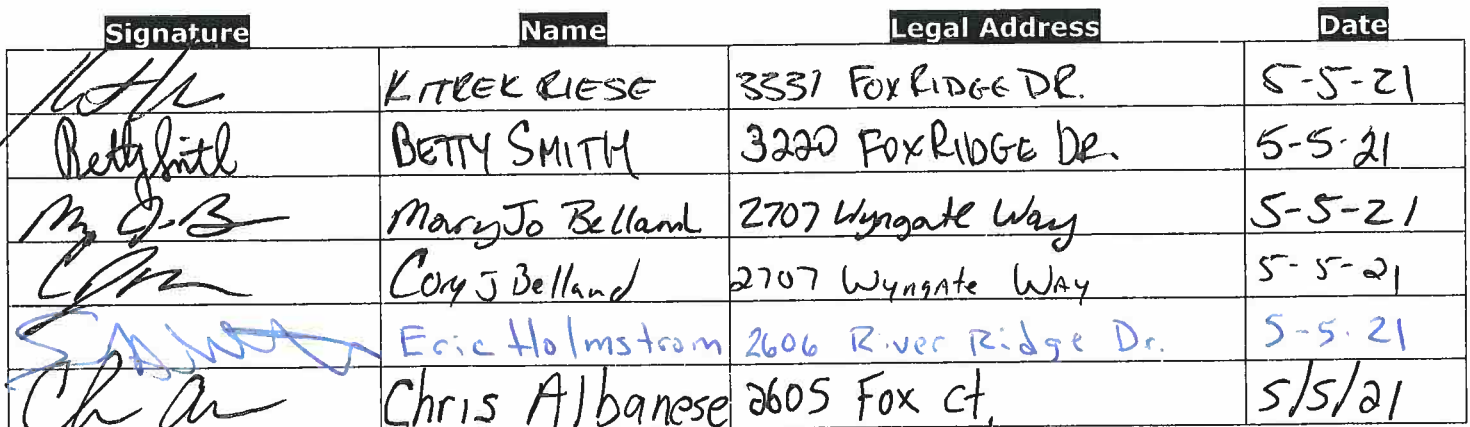 Signature Name Legal Address Date
KITREK RIESE 3331 FOX RIDGE DR. 5-5-21
Betty Smith BETTY SMITH 3220 FOX RIDGE DR. 5-5-21
Mary Jo Belland 2707 Wyngate Way 5-5-21
Cory J Belland 2707 Wyngate WAy 5-5-21
Eric Holmstrom 2606 River Ridge Dr. 5-5-21
Chris Albanese 2605 Fox ct. 5/5/21